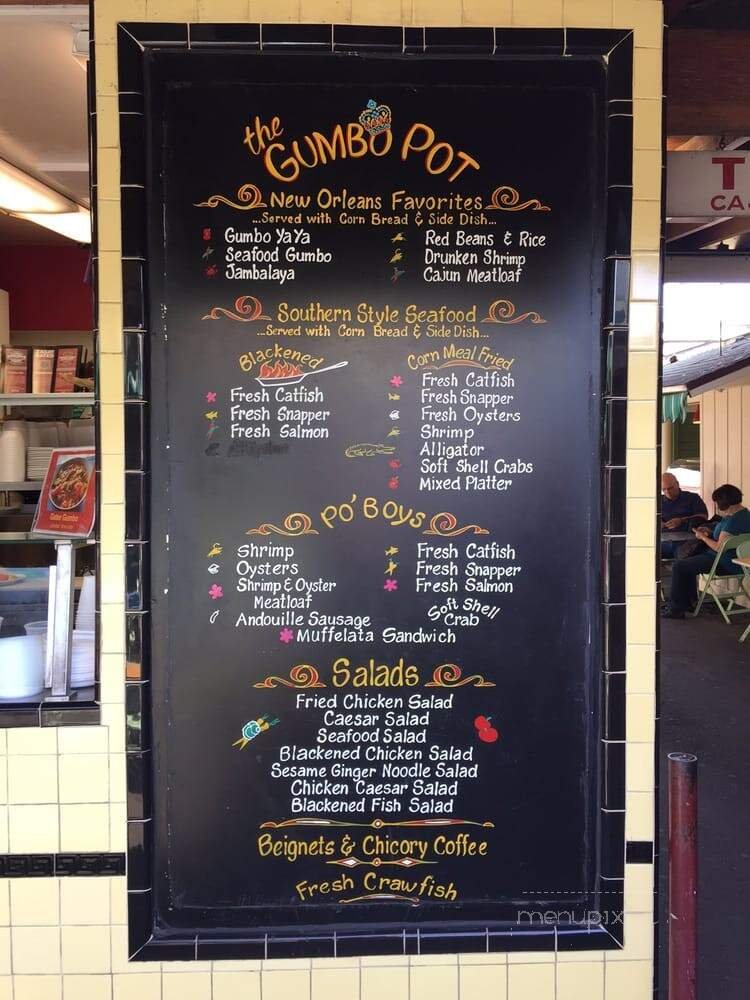 the GUMBO POT
New Orleans Favorites
...Served with Corn Bread & Side Dish...
Gumbo YaYa
Seafood Gumbo
Jambalaya
Red Beans & Rice
Drunken Shrimp
Cajun Meatloaf
Southern Style Seafood
...Served with Corn Bread & Side Dish...
Blackened
Fresh Catfish
Fresh Snapper
Fresh Salmon
Corn Meal Fried
Fresh Catfish
Fresh Snapper
Fresh Oysters
Shrimp
Alligator
Soft Shell Crabs
Mixed Platter
PO'BOYS
Shrimp
Oysters
Shrimp & Oyster
Meatloaf
Andouille Sausage
Fresh Catfish
Fresh Snapper
Fresh Salmon
Soft Shell
Crab
Muffelata Sandwich
Salads
Fried Chicken Salad
Caesar Salad
Seafood Salad
Blackened Chicken Salad
Sesame Ginger Noodle Salad
Chicken Caesar Salad
Blackened Fish Salad
Beignets & Chicory Coffee
Fresh Crawfish
menupix
T
CAJ
Gator Gumbo